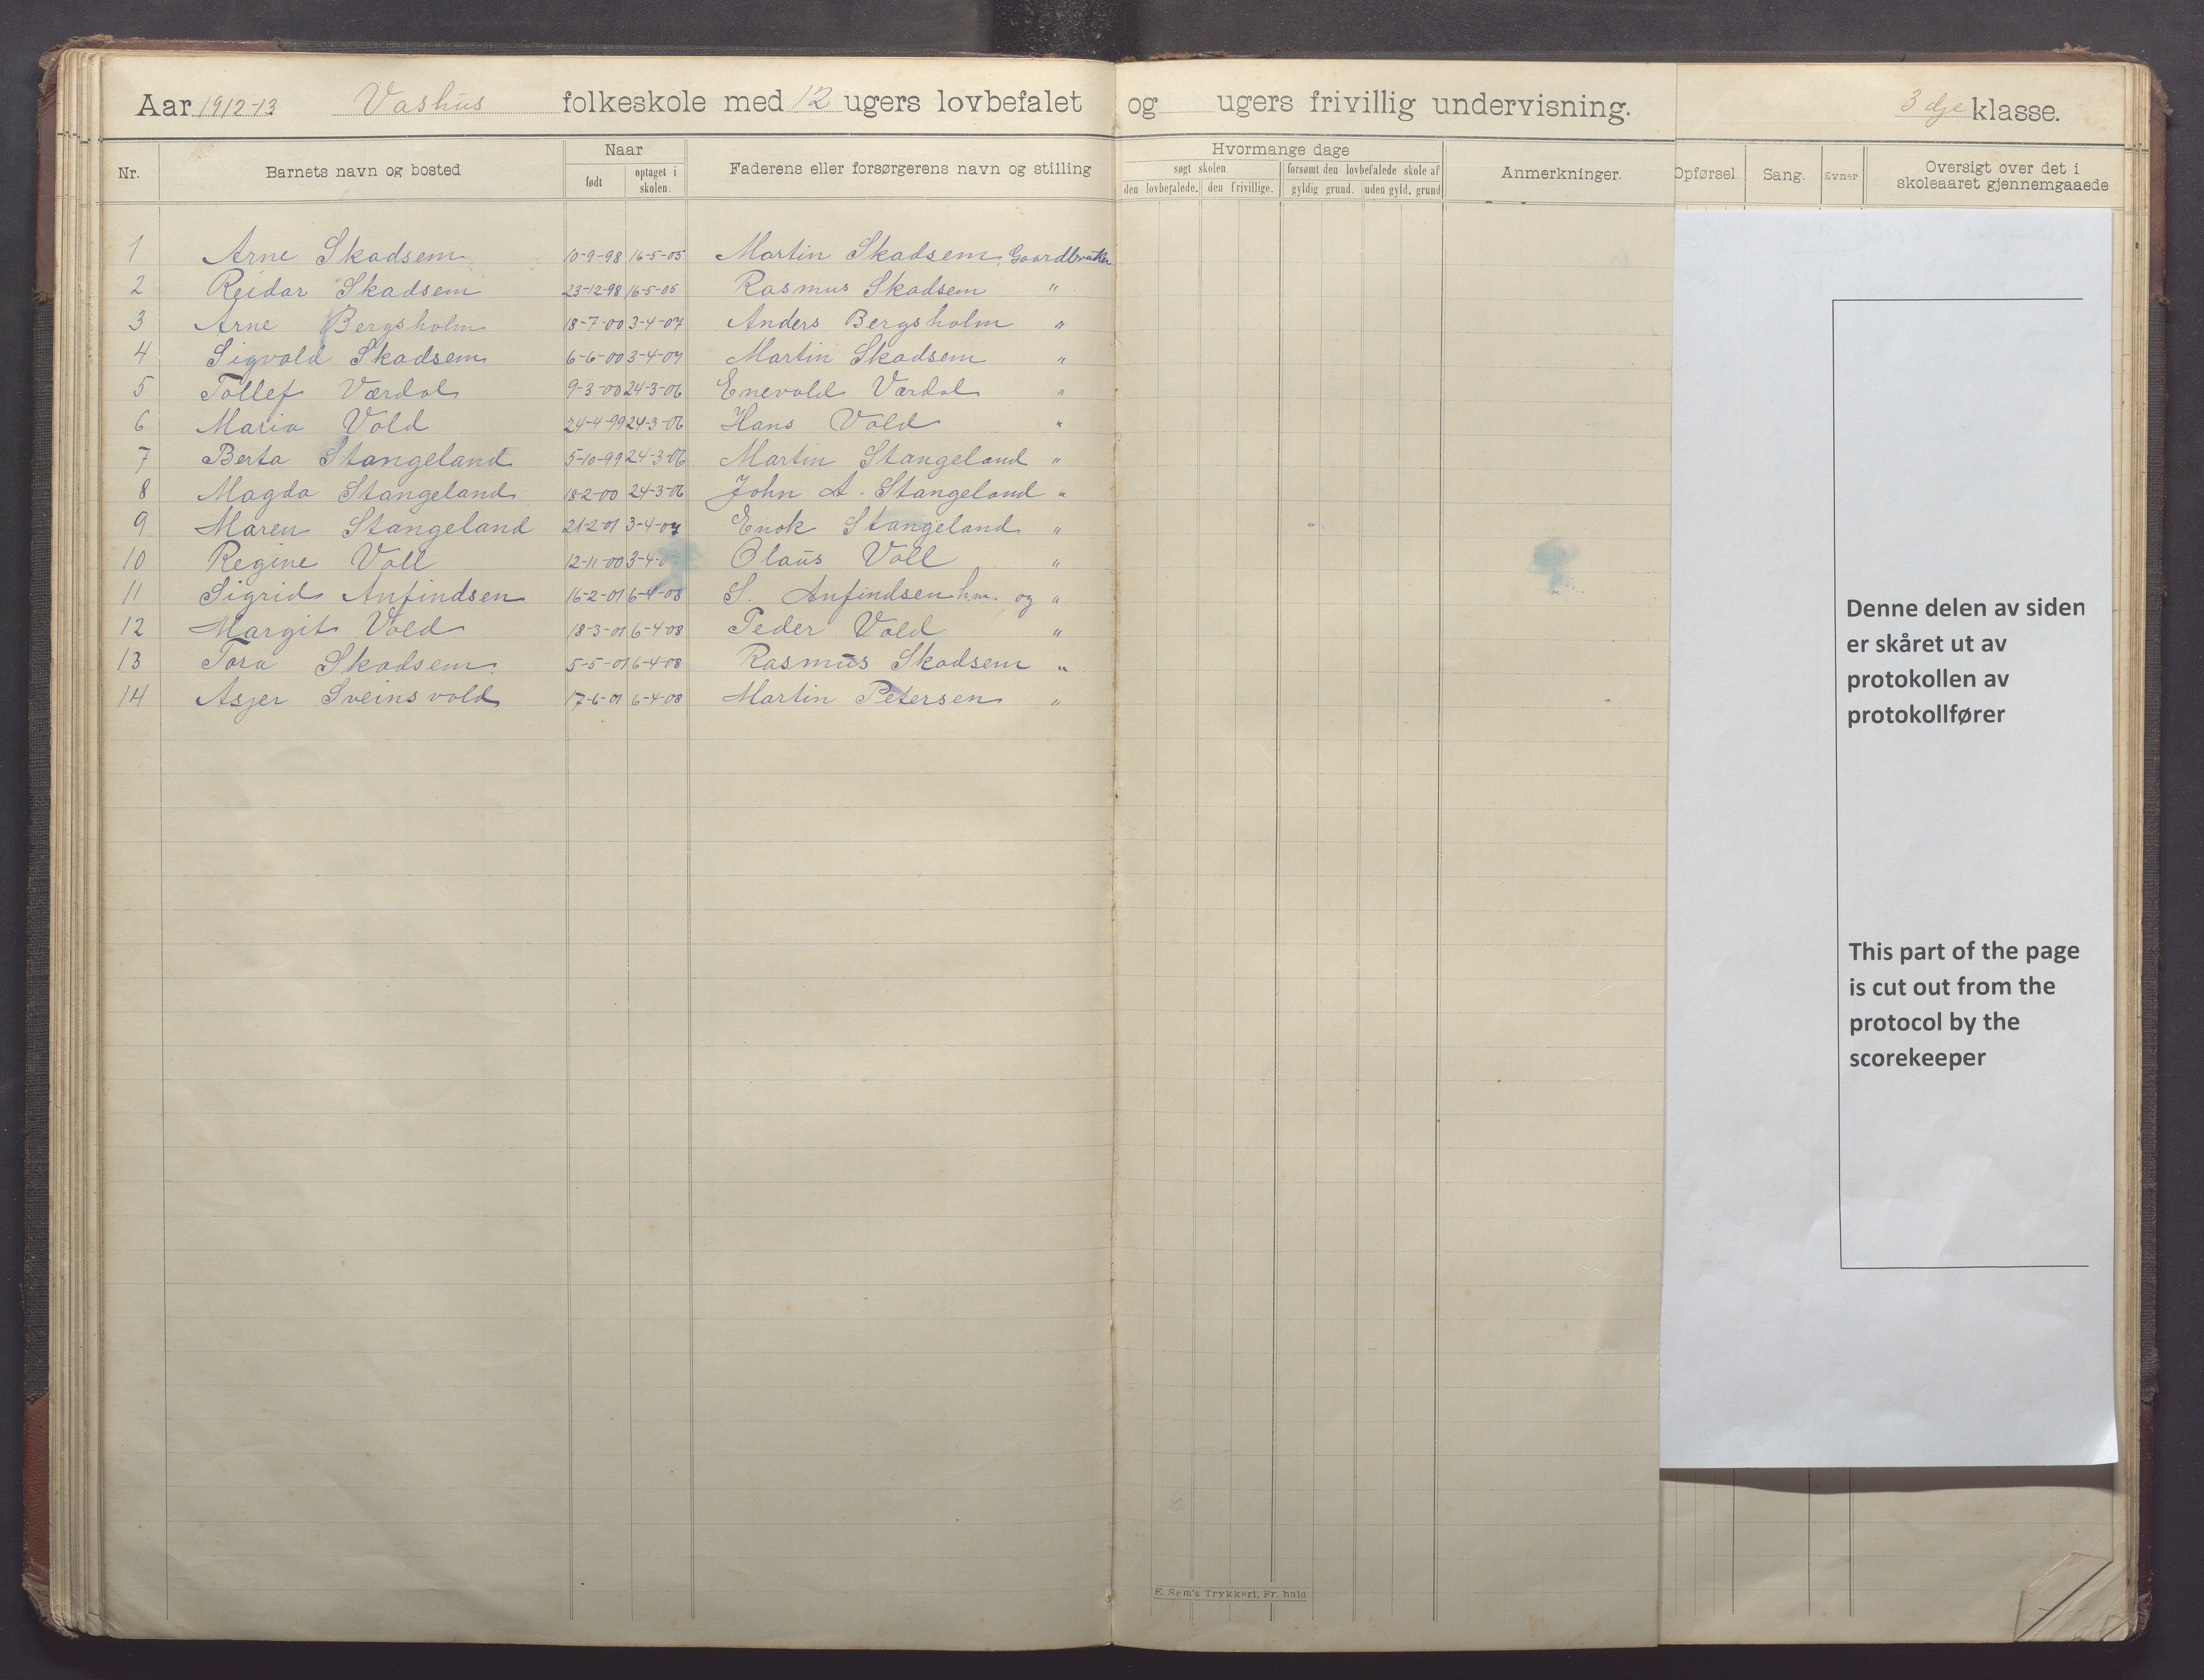 Aar 1912-13 Vashus folkeskole med 12 ugers lovbefalet og ugers frivillig undervisning. 3dje klasse.
Nr. Barnets navn og bosted Naar født optaget i skolen. Faderens eller forsørgerens navn og stilling Hvormange dage søgt skolen den lovbefalede. den frivillige. forsømt den lovbefalede skole af gyldig grund. uden gyld. grund Anmerkninger. Opførsel Sang. Evner Oversigt over det i skoleaaret gjennemgaaede
1 Arne Skadsem 10-9-98 16-5-05 Martin Skadsem, Gaardbruker
2 Reidar Skadsem 23-12-98 16-5-05 Rasmus Skadsem "
3 Arne Bergsholm 18-7-00 3-4-07 Anders Bergsholm "
4 Sigvald Skadsem 6-6-00 3-4-07 Martin Skadsem "
5 Tollef Værdal 9-3-00 24-3-06 Enevald Værdal "
6 Maria Vold 24-4-99 24-3-06 Hans Vold "
7 Berta Stangeland 5-10-99 24-3-06 Martin Stangeland "
8 Magda Stangeland 18-2-00 24-3-06 John A. Stangeland "
9 Maren Stangeland 21-2-01 3-4-07 Enok Stangeland "
10 Regine Voll 12-11-00 3-4-0 Olaus Voll "
11 Sigrid Anfindsen 16-2-01 6-4-08 S. Anfindsen hm. og "
12 Margit Vold 18-3-01 6-4-08 Peder Vold "
13 Tora Skadsem 5-5-01 6-4-08 Rasmus Skadsem "
14 Asjer Sveinsvold 17-6-01 6-4-08 Martin Petersen "
Denne delen av siden
er skåret ut av
protokollen av
protokollfører
This part of the page
is cut out from the
protocol by the
scorekeeper
E. Sem's Trykkeri, Fr. hald